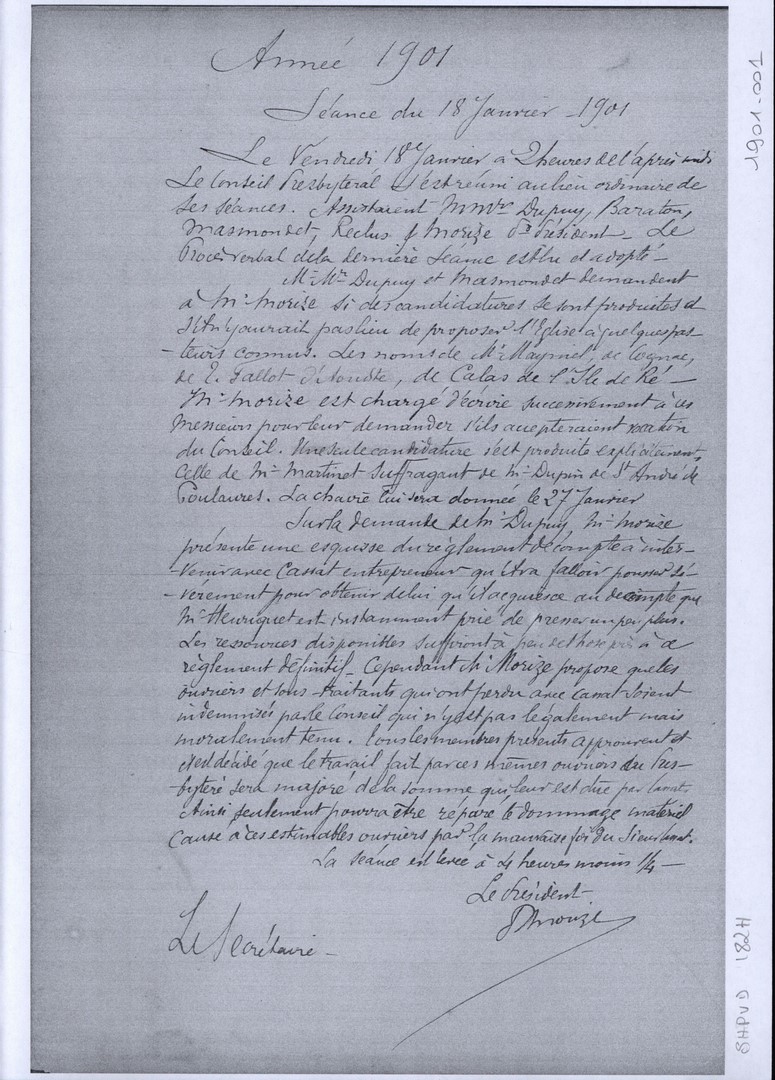 Année 1901
Séance du 18 Janvier - 1901
Le Vendredi 18de Janvier à 2 heures de l'après midi
Le Conseil Presbytéral s'est réuni au lieu ordinaire de
ses séances. Assistaient MMrs Dupuy, Baraton,
Masmondet, Reclus & Morize Pt Président - Le
Procès verbal de la dernière séance est lu et adopté -
Mrs Mrs Dupuy et Masmondet demandent
à Mr Morize si des candidatures se sont produites et
s'il n'y aurait pas lieu de proposer l'Eglise à quelques pas-
-teurs connus. Les noms de Mr de Cognac,
de E. Fallot de Calas de l'Ile de Ré -
Mr Morize est chargé d'écrire successivement à ces
Messieurs pour leur demander s'ils accepteraient vocation
du Conseil. Une seule candidature s'est produite explicitement,
celle de Mr Martinet suffragant de Mr Dupin de St André de
La chaire lui sera donnée le 27 Janvier
Sur la demande de Mr Dupuy, Mr Morize
présente une esquisse du règlement de compte à inter-
-venir avec Cassat entrepreneur qu'il va falloir pousser sé-
-vèrement pour obtenir de lui qu'il acquiesce au décompte que
Mr Henriquet est instamment prié de presser un peu plus.
Les ressources disponibles suffiront à peu de chose près à ce
règlement définitif - Cependant Mr Morize propose que les
ouvriers et sous-traitants qui ont perdu avec Cassat soient
indemnisés par le Conseil qui n'y est pas légalement mais
moralement tenu. Tous les membres présents approuvent et
il est décidé que le travail fait par ces mêmes ouvriers au Pres-
-bytère sera majoré de la somme qui leur est due par Cassat.
Ainsi seulement pourra être réparé le dommage matériel
causé à ces estimables ouvriers par la mauvaise foi du Sieur Cassat.
La séance est levée à 4 heures moins 1/4 -
Le Président -
Morize
Le Secrétaire -
1901-001
SHPVD 182H